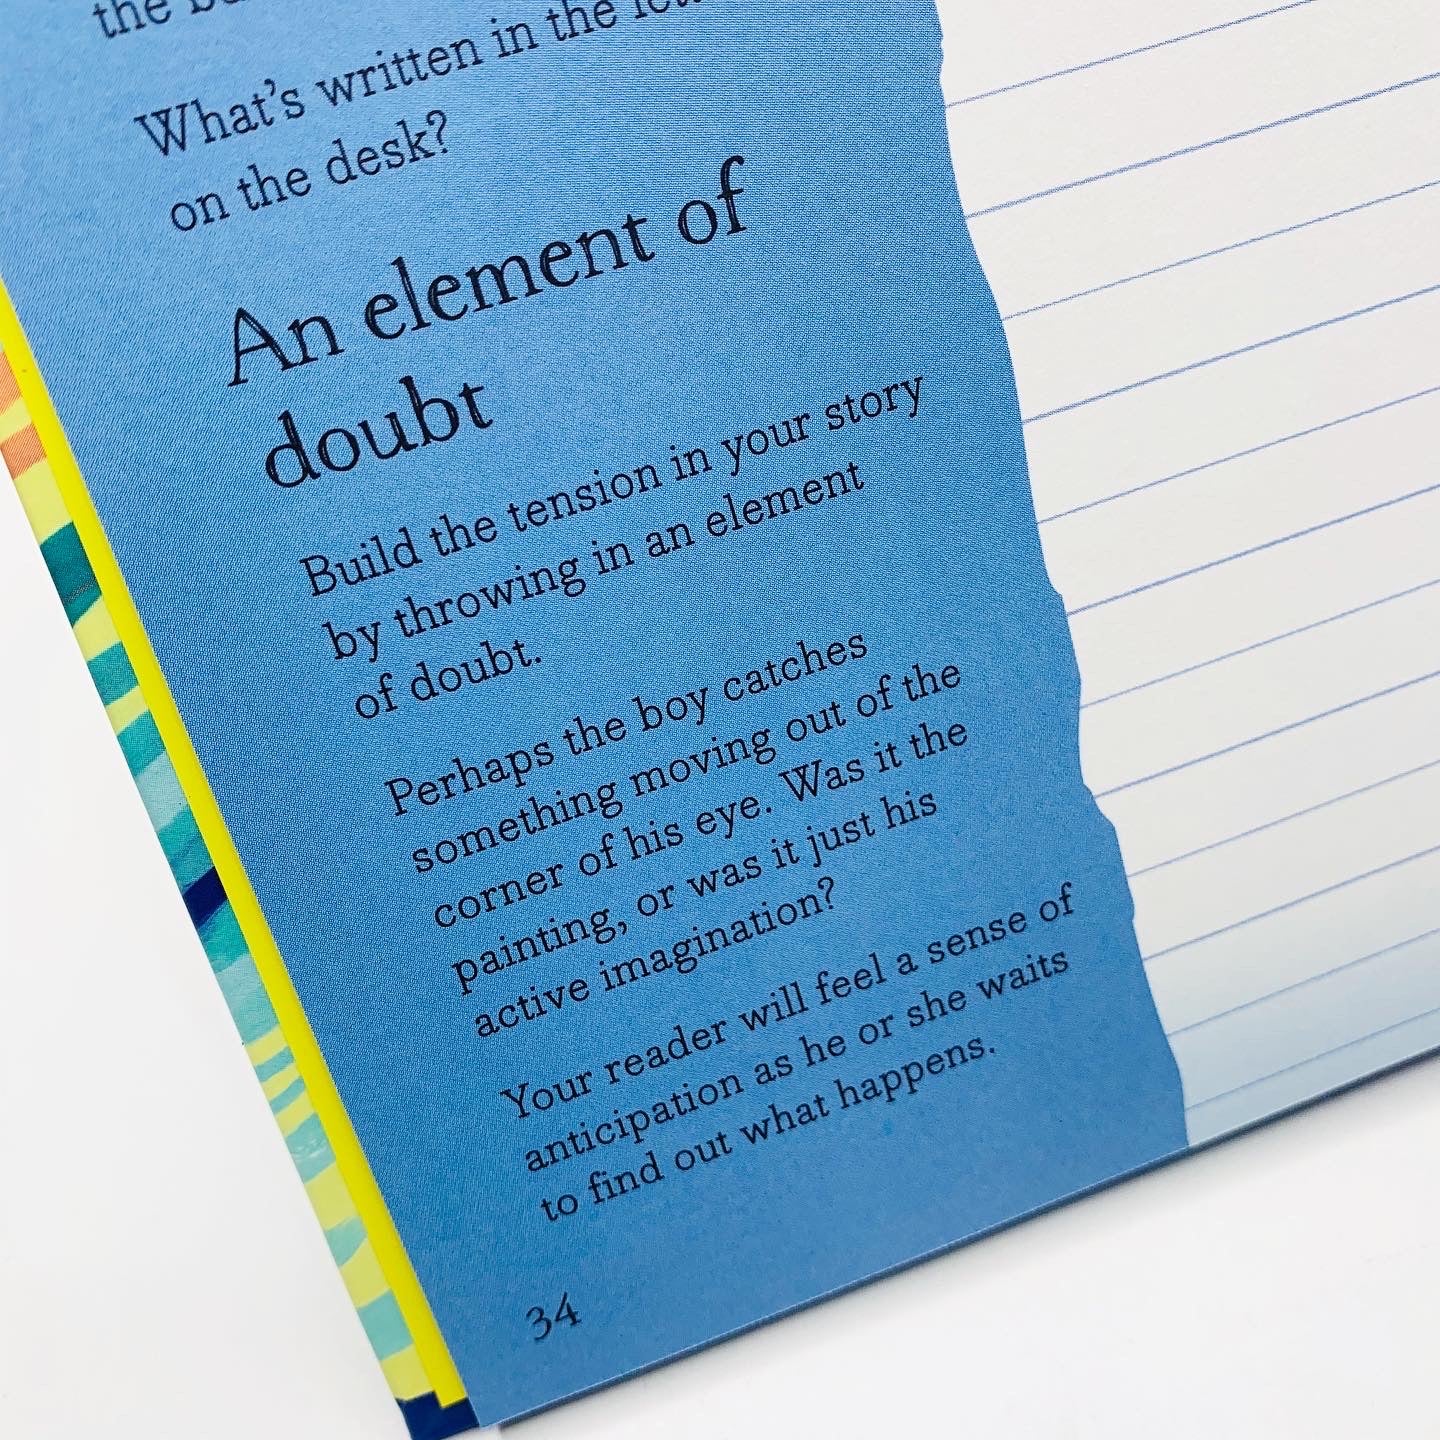 the
What's written in the
on the desk?
An element of
doubt
Build the tension in your story
by throwing in an element
of doubt.
Perhaps the boy catches
something moving out of the
corner of his eye. Was it the
painting, or was it just his
active imagination?
Your reader will feel a sense of
anticipation as he or she waits
to find out what happens.
34